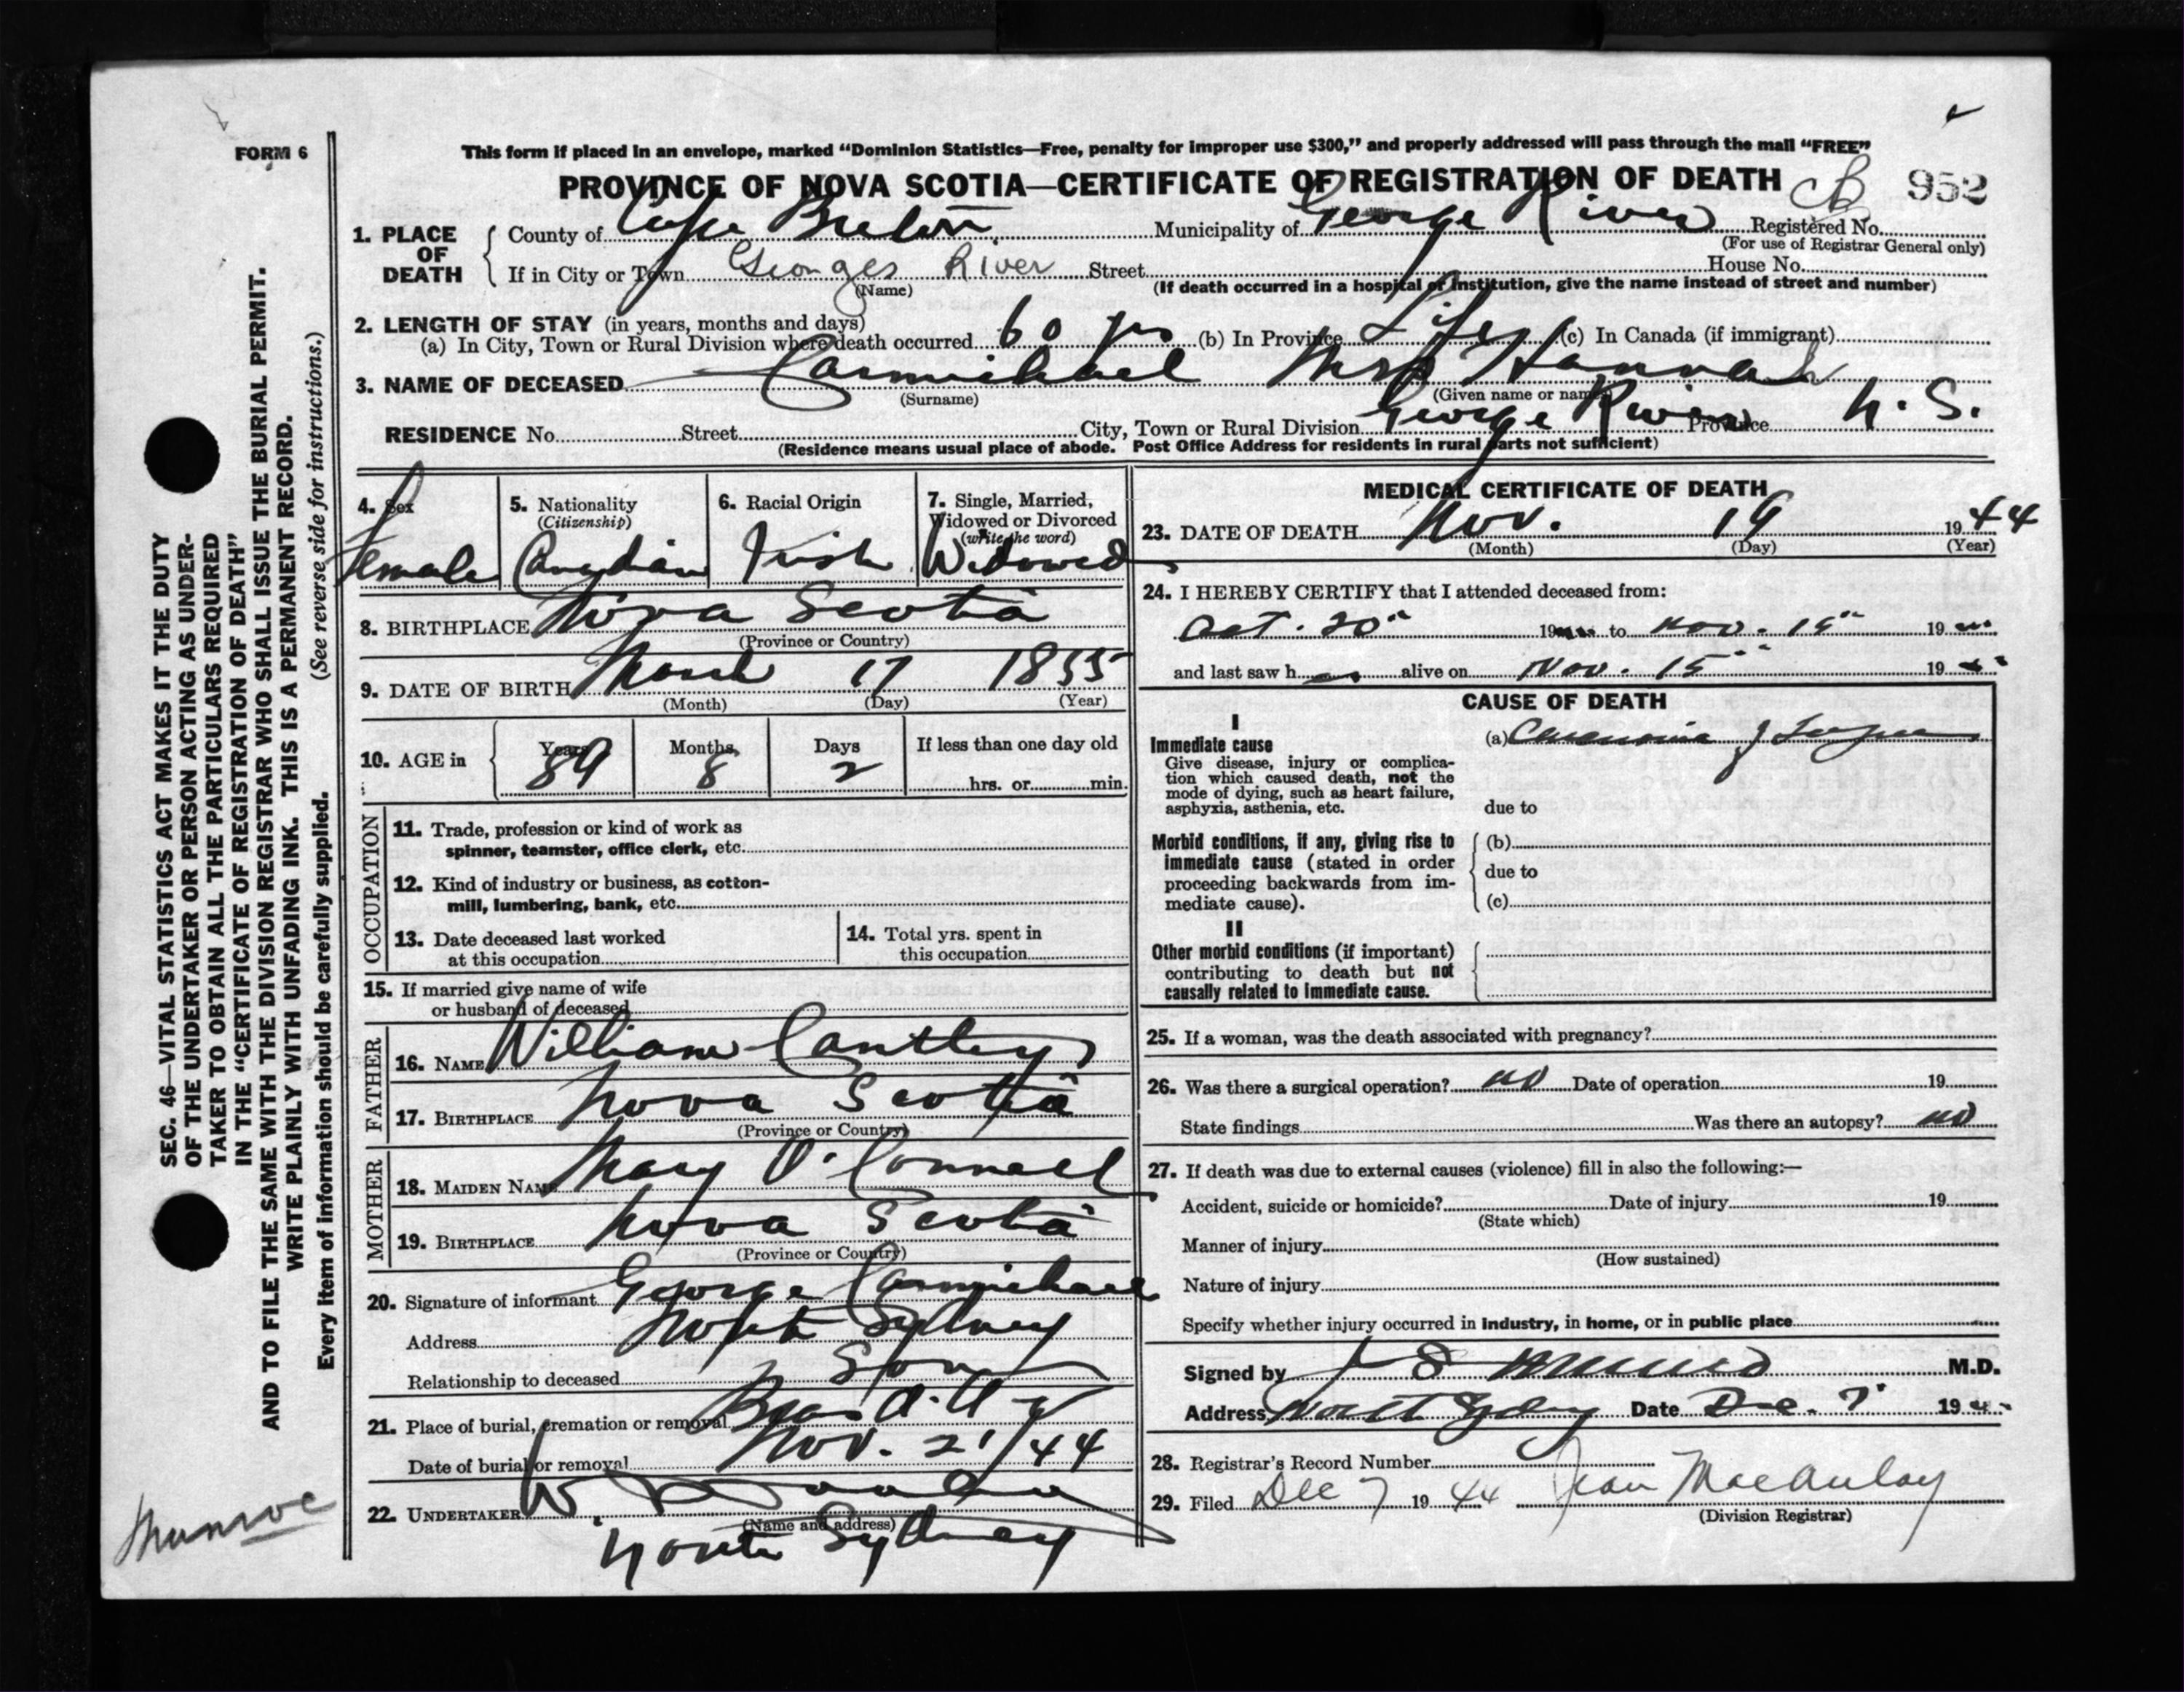 FORM 6
This form if placed in an envelope, marked “Dominion Statistics—Free, penalty for improper use $300,” and properly addressed will pass through the mail “FREE”
PROVINCE OF NOVA SCOTIA—CERTIFICATE OF REGISTRATION OF DEATH 952
1. PLACE OF DEATH
County of Cape Breton Municipality of George River Registered No.
(For use of Registrar General only)
If in City or Town Georges River Street House No.
(Name) (If death occurred in a hospital or institution, give the name instead of street and number)
2. LENGTH OF STAY (in years, months and days)
(a) In City, Town or Rural Division where death occurred 60 yrs (b) In Province Life (c) In Canada (if immigrant)
3. NAME OF DECEASED Carmichael Mrs Hannah
(Surname) (Given name or names)
RESIDENCE No. Street City, Town or Rural Division George River Province N. S.
(Residence means usual place of abode. Post Office Address for residents in rural parts not sufficient)
SEC. 46—VITAL STATISTICS ACT MAKES IT THE DUTY
OF THE UNDERTAKER OR PERSON ACTING AS UNDER-
TAKER TO OBTAIN ALL THE PARTICULARS REQUIRED
IN THE “CERTIFICATE OF REGISTRATION OF DEATH”
AND TO FILE THE SAME WITH THE DIVISION REGISTRAR WHO SHALL ISSUE THE BURIAL PERMIT.
WRITE PLAINLY WITH UNFADING INK. THIS IS A PERMANENT RECORD.
Every item of information should be carefully supplied. (See reverse side for instructions.)
4. Sex
Female
5. Nationality
(Citizenship)
Canadian
6. Racial Origin
Irish
7. Single, Married,
Widowed or Divorced
(write the word)
Widowed
8. BIRTHPLACE Nova Scotia
(Province or Country)
9. DATE OF BIRTH March 17 1855
(Month) (Day) (Year)
10. AGE in Years 89 Months 8 Days 2 If less than one day old
hrs. or min.
OCCUPATION
11. Trade, profession or kind of work as
spinner, teamster, office clerk, etc.
12. Kind of industry or business, as cotton-
mill, lumbering, bank, etc.
13. Date deceased last worked
at this occupation
14. Total yrs. spent in
this occupation
15. If married give name of wife
or husband of deceased
FATHER
16. NAME William Cantley
17. BIRTHPLACE Nova Scotia
(Province or Country)
MOTHER
18. MAIDEN NAME Mary O'Connell
19. BIRTHPLACE Nova Scotia
(Province or Country)
20. Signature of informant George Carmichael
Address North Sydney
Relationship to deceased Son
21. Place of burial, cremation or removal
Date of burial or removal Nov. 21/44
22. UNDERTAKER
(Name and address)
North Sydney
Munroe
MEDICAL CERTIFICATE OF DEATH
23. DATE OF DEATH Nov. 19 1944
(Month) (Day) (Year)
24. I HEREBY CERTIFY that I attended deceased from:
Oct. 20th 19 to Nov. 15th 19
and last saw h alive on Nov. 15th 19
CAUSE OF DEATH
I
Immediate cause
Give disease, injury or complica-
tion which caused death, not the
mode of dying, such as heart failure,
asphyxia, asthenia, etc.
(a)
due to
Morbid conditions, if any, giving rise to
immediate cause (stated in order
proceeding backwards from im-
mediate cause).
(b)
due to
(c)
II
Other morbid conditions (if important)
contributing to death but not
causally related to immediate cause.
25. If a woman, was the death associated with pregnancy?
26. Was there a surgical operation? no Date of operation 19
State findings Was there an autopsy? no
27. If death was due to external causes (violence) fill in also the following:—
Accident, suicide or homicide? Date of injury 19
(State which)
Manner of injury
(How sustained)
Nature of injury
Specify whether injury occurred in industry, in home, or in public place
Signed by M.D.
Address North Sydney Date Dec. 7 19
28. Registrar's Record Number
29. Filed Dec 7 1944 Jean MacAulay
(Division Registrar)